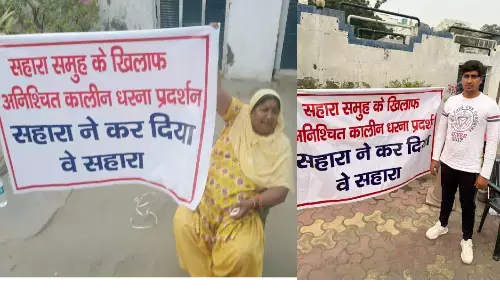 सहारा समुह के खिलाफ
अनिश्चित कालीन धरना प्रदर्शन
सहारा ने कर दिया
वे सहारा
सहारा समुह के खिलाफ
अनिश्चित कालीन धरना प्रदर्शन
सहारा ने कर दिया
वे सहारा